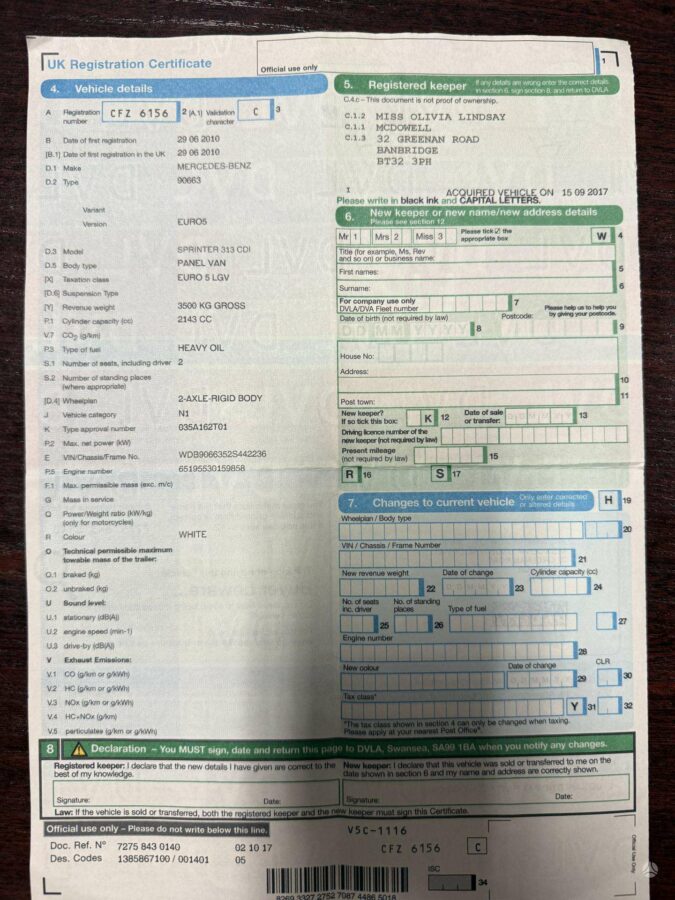 UK Registration Certificate
Official use only
1
4. Vehicle details
A Registration number CFZ 6156 2 [A.1] Validation character C 3
B Date of first registration 29 06 2010
[B.1] Date of first registration in the UK 29 06 2010
D.1 Make MERCEDES-BENZ
D.2 Type 90663
Variant
Version EURO5
D.3 Model SPRINTER 313 CDI
D.5 Body type PANEL VAN
[X] Taxation class EURO 5 LGV
[D.6] Suspension Type
[Y] Revenue weight 3500 KG GROSS
P.1 Cylinder capacity (cc) 2143 CC
V.7 CO2 (g/km)
P.3 Type of fuel HEAVY OIL
S.1 Number of seats, including driver 2
S.2 Number of standing places
(where appropriate)
[D.4] Wheelplan 2-AXLE-RIGID BODY
J Vehicle category N1
K Type approval number 035A162T01
P.2 Max. net power (kW)
E VIN/Chassis/Frame No. WDB9066352S442236
P.5 Engine number 65195530159858
F.1 Max. permissible mass (exc. m/c)
G Mass in service
Q Power/Weight ratio (kW/kg)
(only for motorcycles)
R Colour WHITE
O Technical permissible maximum
towable mass of the trailer:
O.1 braked (kg)
O.2 unbraked (kg)
U Sound level:
U.1 stationary (dB(A))
U.2 engine speed (min-1)
U.3 drive-by (dB(A))
V Exhaust Emissions:
V.1 CO (g/km or g/kWh)
V.2 HC (g/km or g/kWh)
V.3 NOx (g/km or g/kWh)
V.4 HC+NOx (g/km)
V.5 particulates (g/km or g/kWh)
5. Registered keeper
If any details are wrong enter the correct details
in section 6, sign section 8, and return to DVLA
C.4.c – This document is not proof of ownership.
C.1.2 MISS OLIVIA LINDSAY
C.1.1 MCDOWELL
C.1.3 32 GREENAN ROAD
BANBRIDGE
BT32 3PH
I ACQUIRED VEHICLE ON 15 09 2017
Please write in black ink and CAPITAL LETTERS.
6. New keeper or new name/new address details
Please see section 12
Mr 1 Mrs 2 Miss 3 Please tick ☑ the
appropriate box W 4
Title (for example, Ms, Rev
and so on) or business name:
First names: 5
Surname: 6
For company use only
DVLA/DVA Fleet number 7
Please help us to help you
by giving your postcode.
Date of birth (not required by law) 8 Postcode: 9
House No:
Address: 10
Post town: 11
New keeper?
If so tick this box: K 12 Date of sale
or transfer: 13
Driving licence number of the
new keeper (not required by law)
Present mileage
(not required by law) 15
R 16 S 17
7. Changes to current vehicle
Only enter corrected
or altered details H 19
Wheelplan / Body type 20
VIN / Chassis / Frame Number 21
New revenue weight 22 Date of change 23 Cylinder capacity (cc) 24
No. of seats
inc. driver 25 No. of standing
places 26 Type of fuel 27
Engine number 28
New colour Date of change 29 CLR 30
Tax class* Y 31 32
*The tax class shown in section 4 can only be changed when taxing.
Please apply at your nearest Post Office®.
8 Declaration – You MUST sign, date and return this page to DVLA, Swansea, SA99 1BA when you notify any changes.
Registered keeper: I declare that the new details I have given are correct to the
best of my knowledge.
Signature: Date:
New keeper: I declare that this vehicle was sold or transferred to me on the
date shown in section 6 and my name and address are correctly shown.
Signature: Date:
Law: If the vehicle is sold or transferred, both the registered keeper and the new keeper must sign this Certificate.
Official use only – Please do not write below this line.
Doc. Ref. Nº 7275 843 0140 02 10 17
Des. Codes 1385867100 / 001401 05
V5C-1116
CFZ 6156 C
ISC 34
Official Use Only